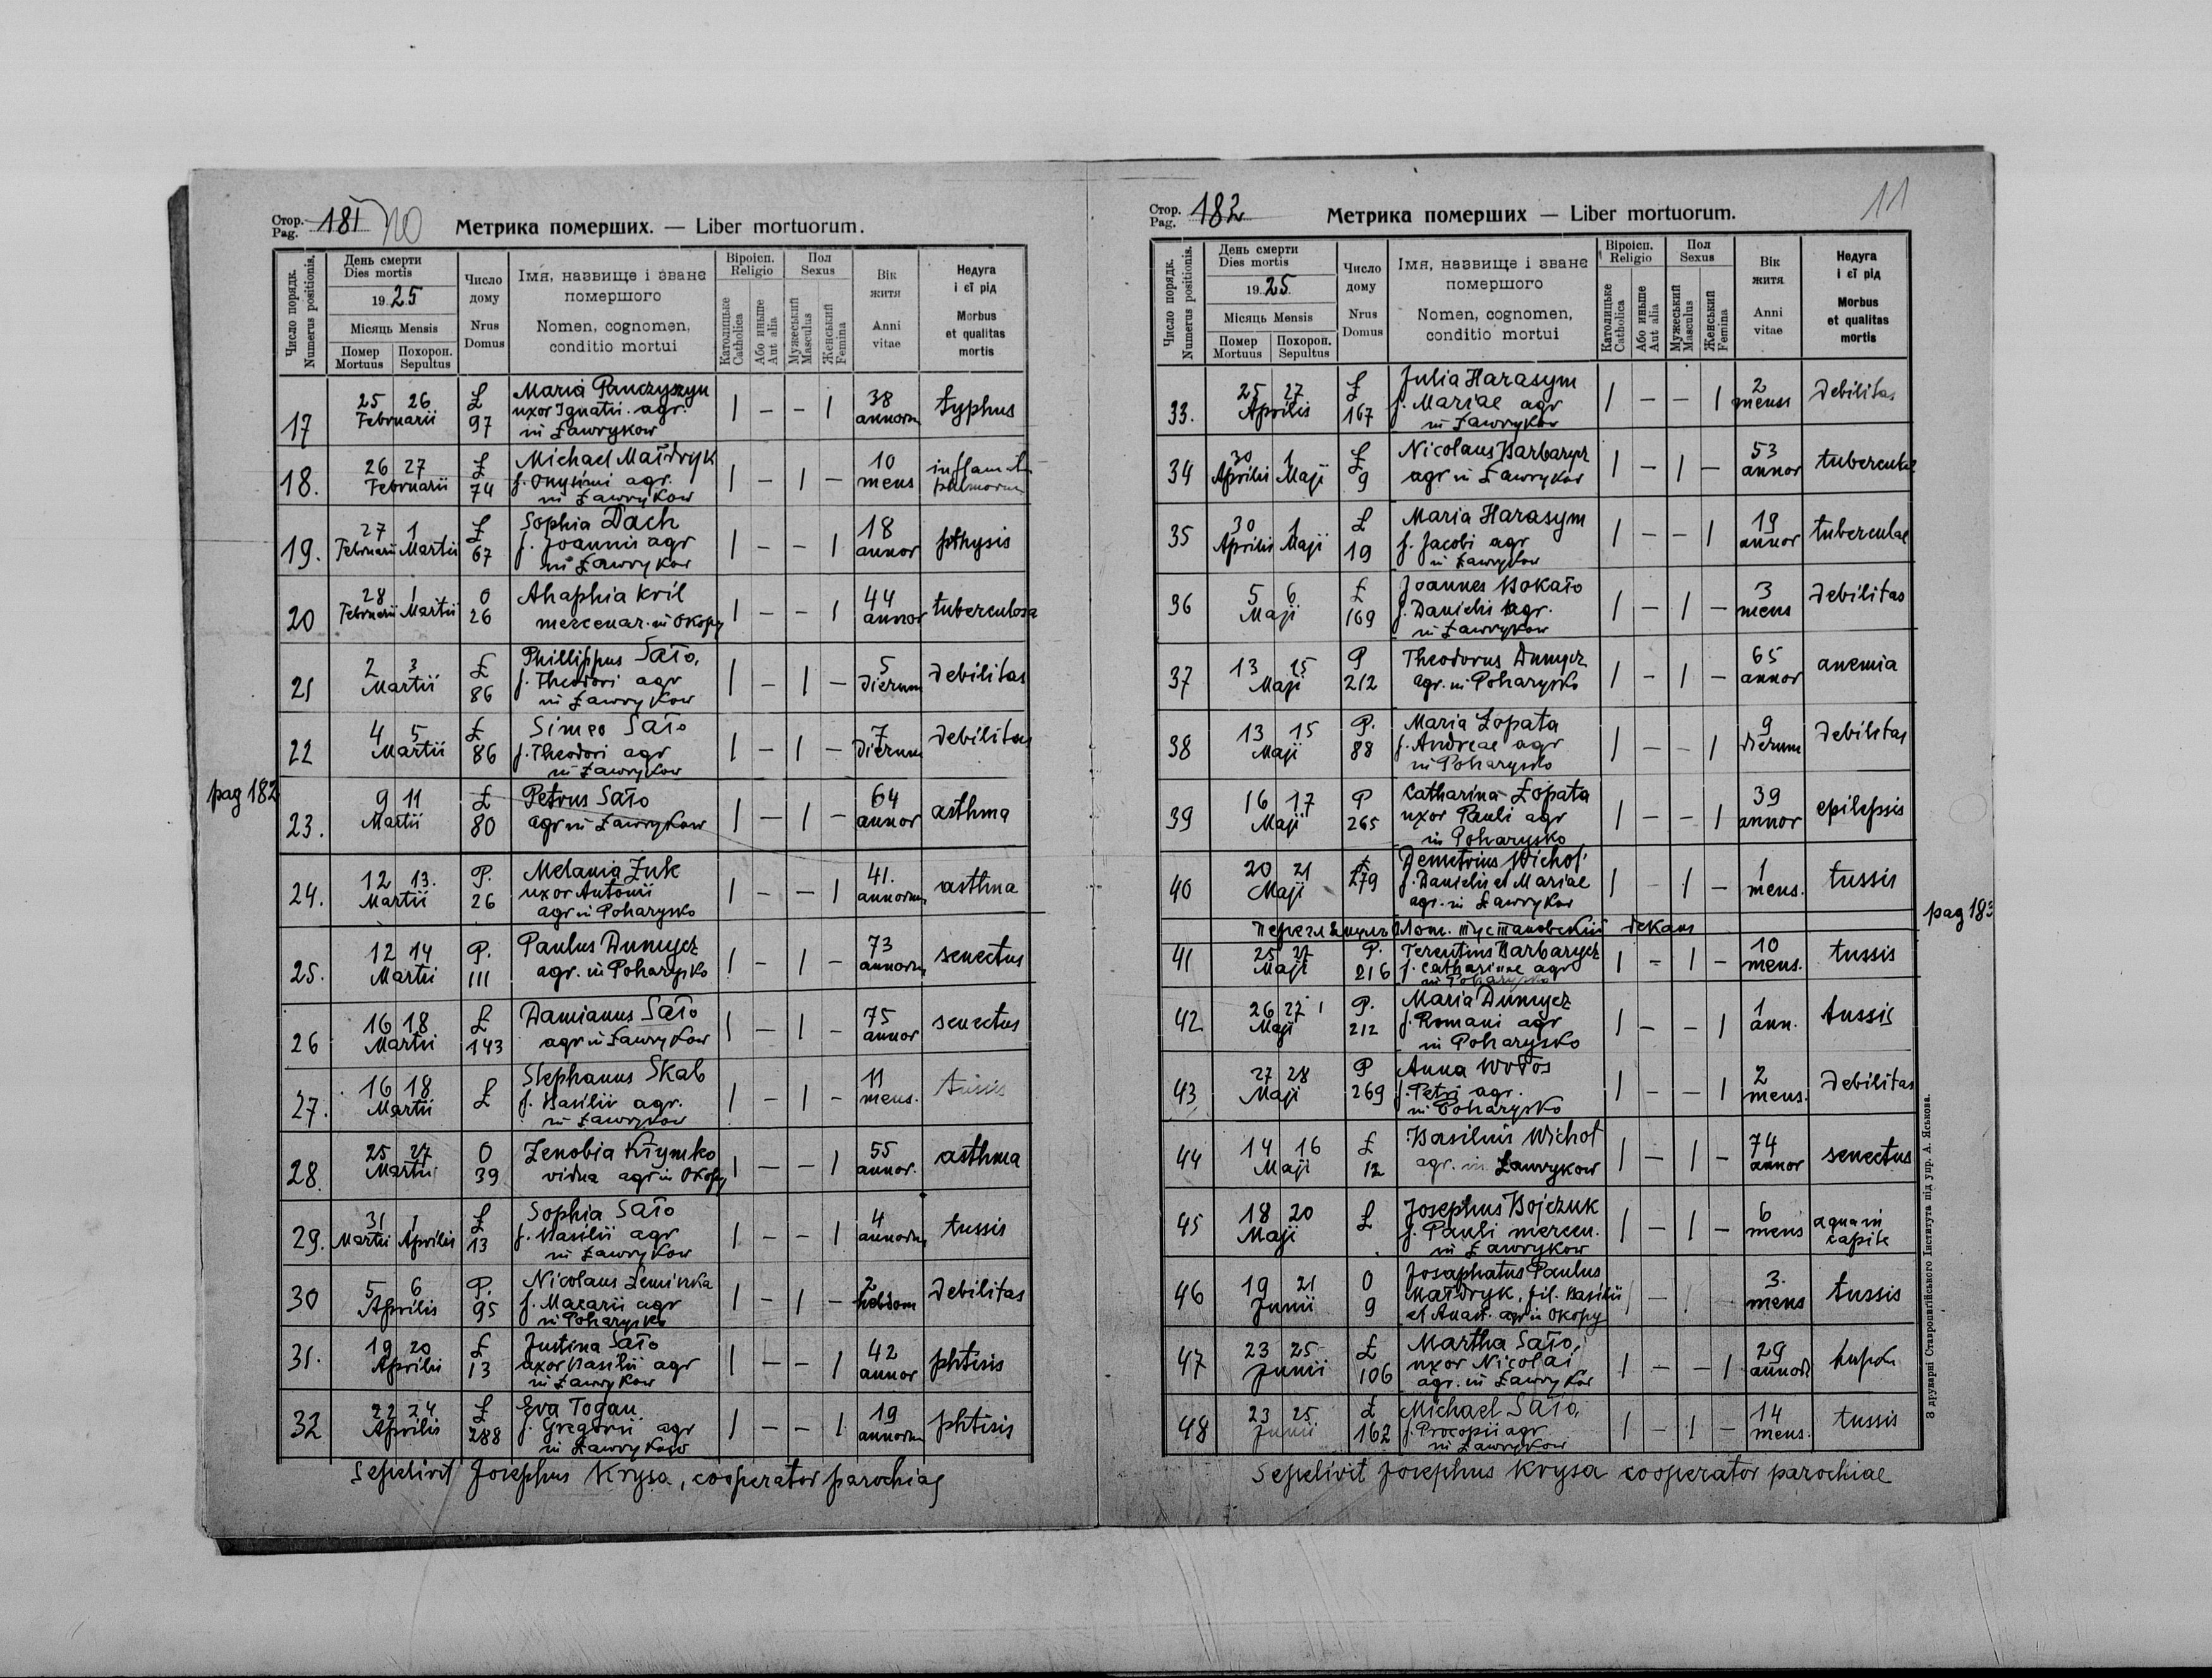 Стор. Pag. 181 10 Метрика померших. — Liber mortuorum.
Число порядк. Numerus positionis.
День смерти Dies mortis
1925
Місяць Mensis
Помер Mortuus
Похорон. Sepultus
Число дому Nrus Domus
Імя, назвище і зване помершого
Nomen, cognomen, conditio mortui
Віроісп. Religio
Католицьке Catholica
Або иньше Aut alia
Пол Sexus
Мужеський Masculus
Женський Femina
Вік житя Anni vitae
Недуга і єї рід
Morbus et qualitas mortis
17 25 26 Februarii Ł 97 Maria Panczyszyn uxor Ignatii agr. in Ławrykow 1 – – 1 38 annorum typhus
18. 26 27 Februarii Ł 74 Michael Mařdryk f. Onysimi agr. in Ławrykow 1 – 1 – 10 mens
19. 27 Februarii 1 Martii Ł 67 Sophia Dach f. Joannis agr in Ławrykow 1 – – 1 18 annor pthysis
20 28 Februarii 1 Martii O 26 Ahaphia Kril mercenar. in Okopy 1 – – 1 44 annor tuberculosa
21 2 3 Martii Ł 86 Phillippus Sało, f. Theodori agr in Ławrykow 1 – 1 – 5 dierum debilitas
22 4 5 Martii Ł 86 Simeo Sało f. Theodori agr in Ławrykow 1 – 1 – 7 dierum debilitas
pag 182
23. 9 11 Martii Ł 80 Petrus Sało agr in Ławrykow 1 – 1 – 64 annor asthma
24. 12 13. Martii P. 26 Melania Żuk uxor Antonii agr in Poharysko 1 – – 1 41. annorum asthma
25. 12 14 Martii P. 111 Paulus Dumycz agr. in Poharysko 1 – 1 – 73 annorum senectus
26 16 18 Martii Ł 143 Damianus Sało agr in Ławrykow 1 – 1 – 75 annor senectus
27. 16 18 Martii Ł Stephanus Skab f. Basilii agr. in Ławrykow 1 – 1 – 11 mens. tussis
28. 25 27 Martii O 39 Zenobia Kłymko vidua agr in Okopy 1 – – 1 55 annor. asthma
29. 31 Martii 1 Aprilis Ł 13 Sophia Sało f. Basilii agr in Ławrykow 1 – – 1 4 annorum tussis
30 5 6 Aprilis P. 95 Nicolaus f. Macarii agr in Poharysko 1 – 1 – 2 hebdom debilitas
31. 19 20 Aprilis Ł 13 Justina Sało uxor Basilii agr in Ławrykow 1 – – 1 42 annor phtisis
32 22 24 Aprilis Ł 288 Eva Togan f. Gregorii agr in Ławrykow 1 – – 1 19 annorum phtisis
Sepelivit Josephus Krysa, cooperator parochiae
Стор. Pag. 182 Метрика померших — Liber mortuorum. 11
Число порядк. Numerus positionis.
День смерти Dies mortis
1925
Місяць Mensis
Помер Mortuus
Похорон. Sepultus
Число дому Nrus Domus
Імя, назвище і зване помершого
Nomen, cognomen, conditio mortui
Віроісп. Religio
Католицьке Catholica
Або иньше Aut alia
Пол Sexus
Мужеський Masculus
Женський Femina
Вік житя Anni vitae
Недуга і єї рід
Morbus et qualitas mortis
33. 25 27 Aprilis Ł 167 Julia Harasym f. Mariae agr in Ławrykow 1 – – 1 2 mens debilitas
34 30 Aprilis 1 Maji Ł 9 Nicolaus Barbarycz agr in Ławrykow 1 – 1 – 53 annor
35 30 Aprilis 1 Maji Ł 19 Maria Harasym f. Jacobi agr in Ławrykow 1 – – 1 19 annor tuberculae
36 5 6 Maji Ł 169 Joannes Bokało f. Danielis agr. in Ławrykow 1 – 1 – 3 mens debilitas
37 13 15 Maji P 212 Theodorus Dumycz agr. in Poharysko 1 – 1 – 65 annor anemia
38 13 15 Maji P. 88 Maria Łopata f. Andreae agr in Poharysko 1 – – 1 9 dierum debilitas
39 16 17 Maji P 265 Catharina Łopata uxor Pauli agr in Poharysko 1 – – 1 39 annor epilepsis
40 20 21 Maji Ł 279 Demetrius Wichot f. Danielis et Mariae agr. in Ławrykow 1 – 1 – 1 mens. tussis
декан
pag 183
41 25 27 Maji P. 216 Terentius Barbarycz f. Catharinae agr in Poharysko 1 – 1 – 10 mens. tussis
42 26 27 Maji P. 212 Maria Dumycz f. Romani agr in Poharysko 1 – – 1 1 ann. tussis
43 27 28 Maji P 269 Anna Wołos f. Petri agr. in Poharysko 1 – – 1 2 mens. debilitas
44 14 16 Maji Ł 12 Basilius Wichot agr. in Ławrykow 1 – 1 – 74 annor senectus
45 18 20 Maji Ł Josephus Bojczuk f. Pauli mercen. in Ławrykow 1 – 1 – 6 mens aqua in capite
46 19 21 Junii O 9 Josaphatus Paulus Małdryk, fil. Basilii et Anast. agr in Okopy 1 – 1 3. mens tussis
47 23 25 Junii Ł 106 Martha Sało, uxor Nicolai agr. in Ławrykow 1 – – 1 29 annor
48 23 25 Junii Ł 162 Michael Sało, f. Procopii agr in Ławrykow 1 – 1 – 14 mens. tussis
Sepelivit Josephus Krysa cooperator parochiae
З друкарні Ставропигійського Інститута під упр. А. Яськова.